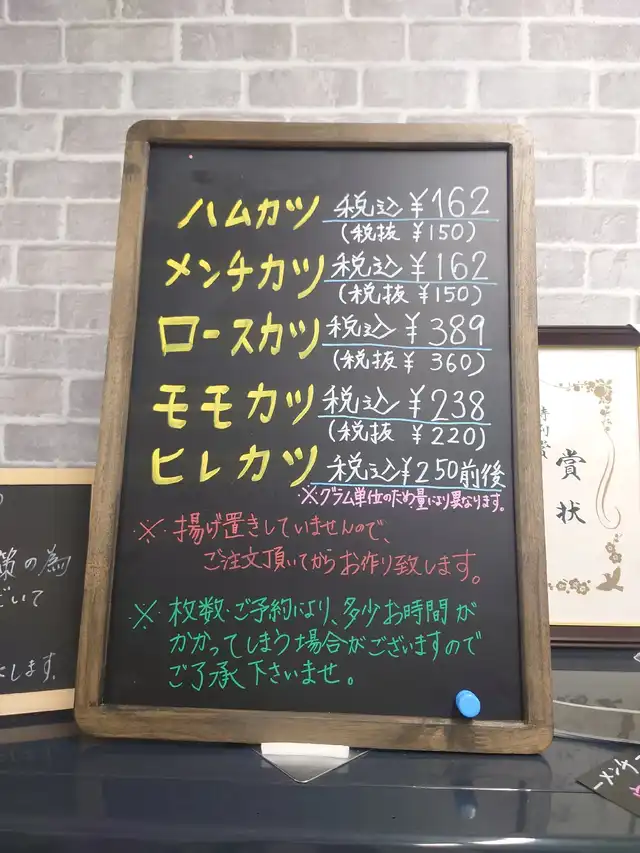 ハムカツ 税込¥162
(税抜 ¥150)
メンチカツ 税込¥162
(税抜 ¥150)
ロースカツ 税込¥389
(税抜 ¥360)
モモカツ 税込¥238
(税抜 ¥220)
ヒレカツ 税込¥250前後
※グラム単位のため量により異なります。
※ 揚げ置きしていませんので、
ご注文頂いてからお作り致します。
※ 枚数・ご予約により、多少お時間が
かかってしまう場合がございますので
ご了承下さいませ。
策の為
だいて
します。
賞
状
メンチ